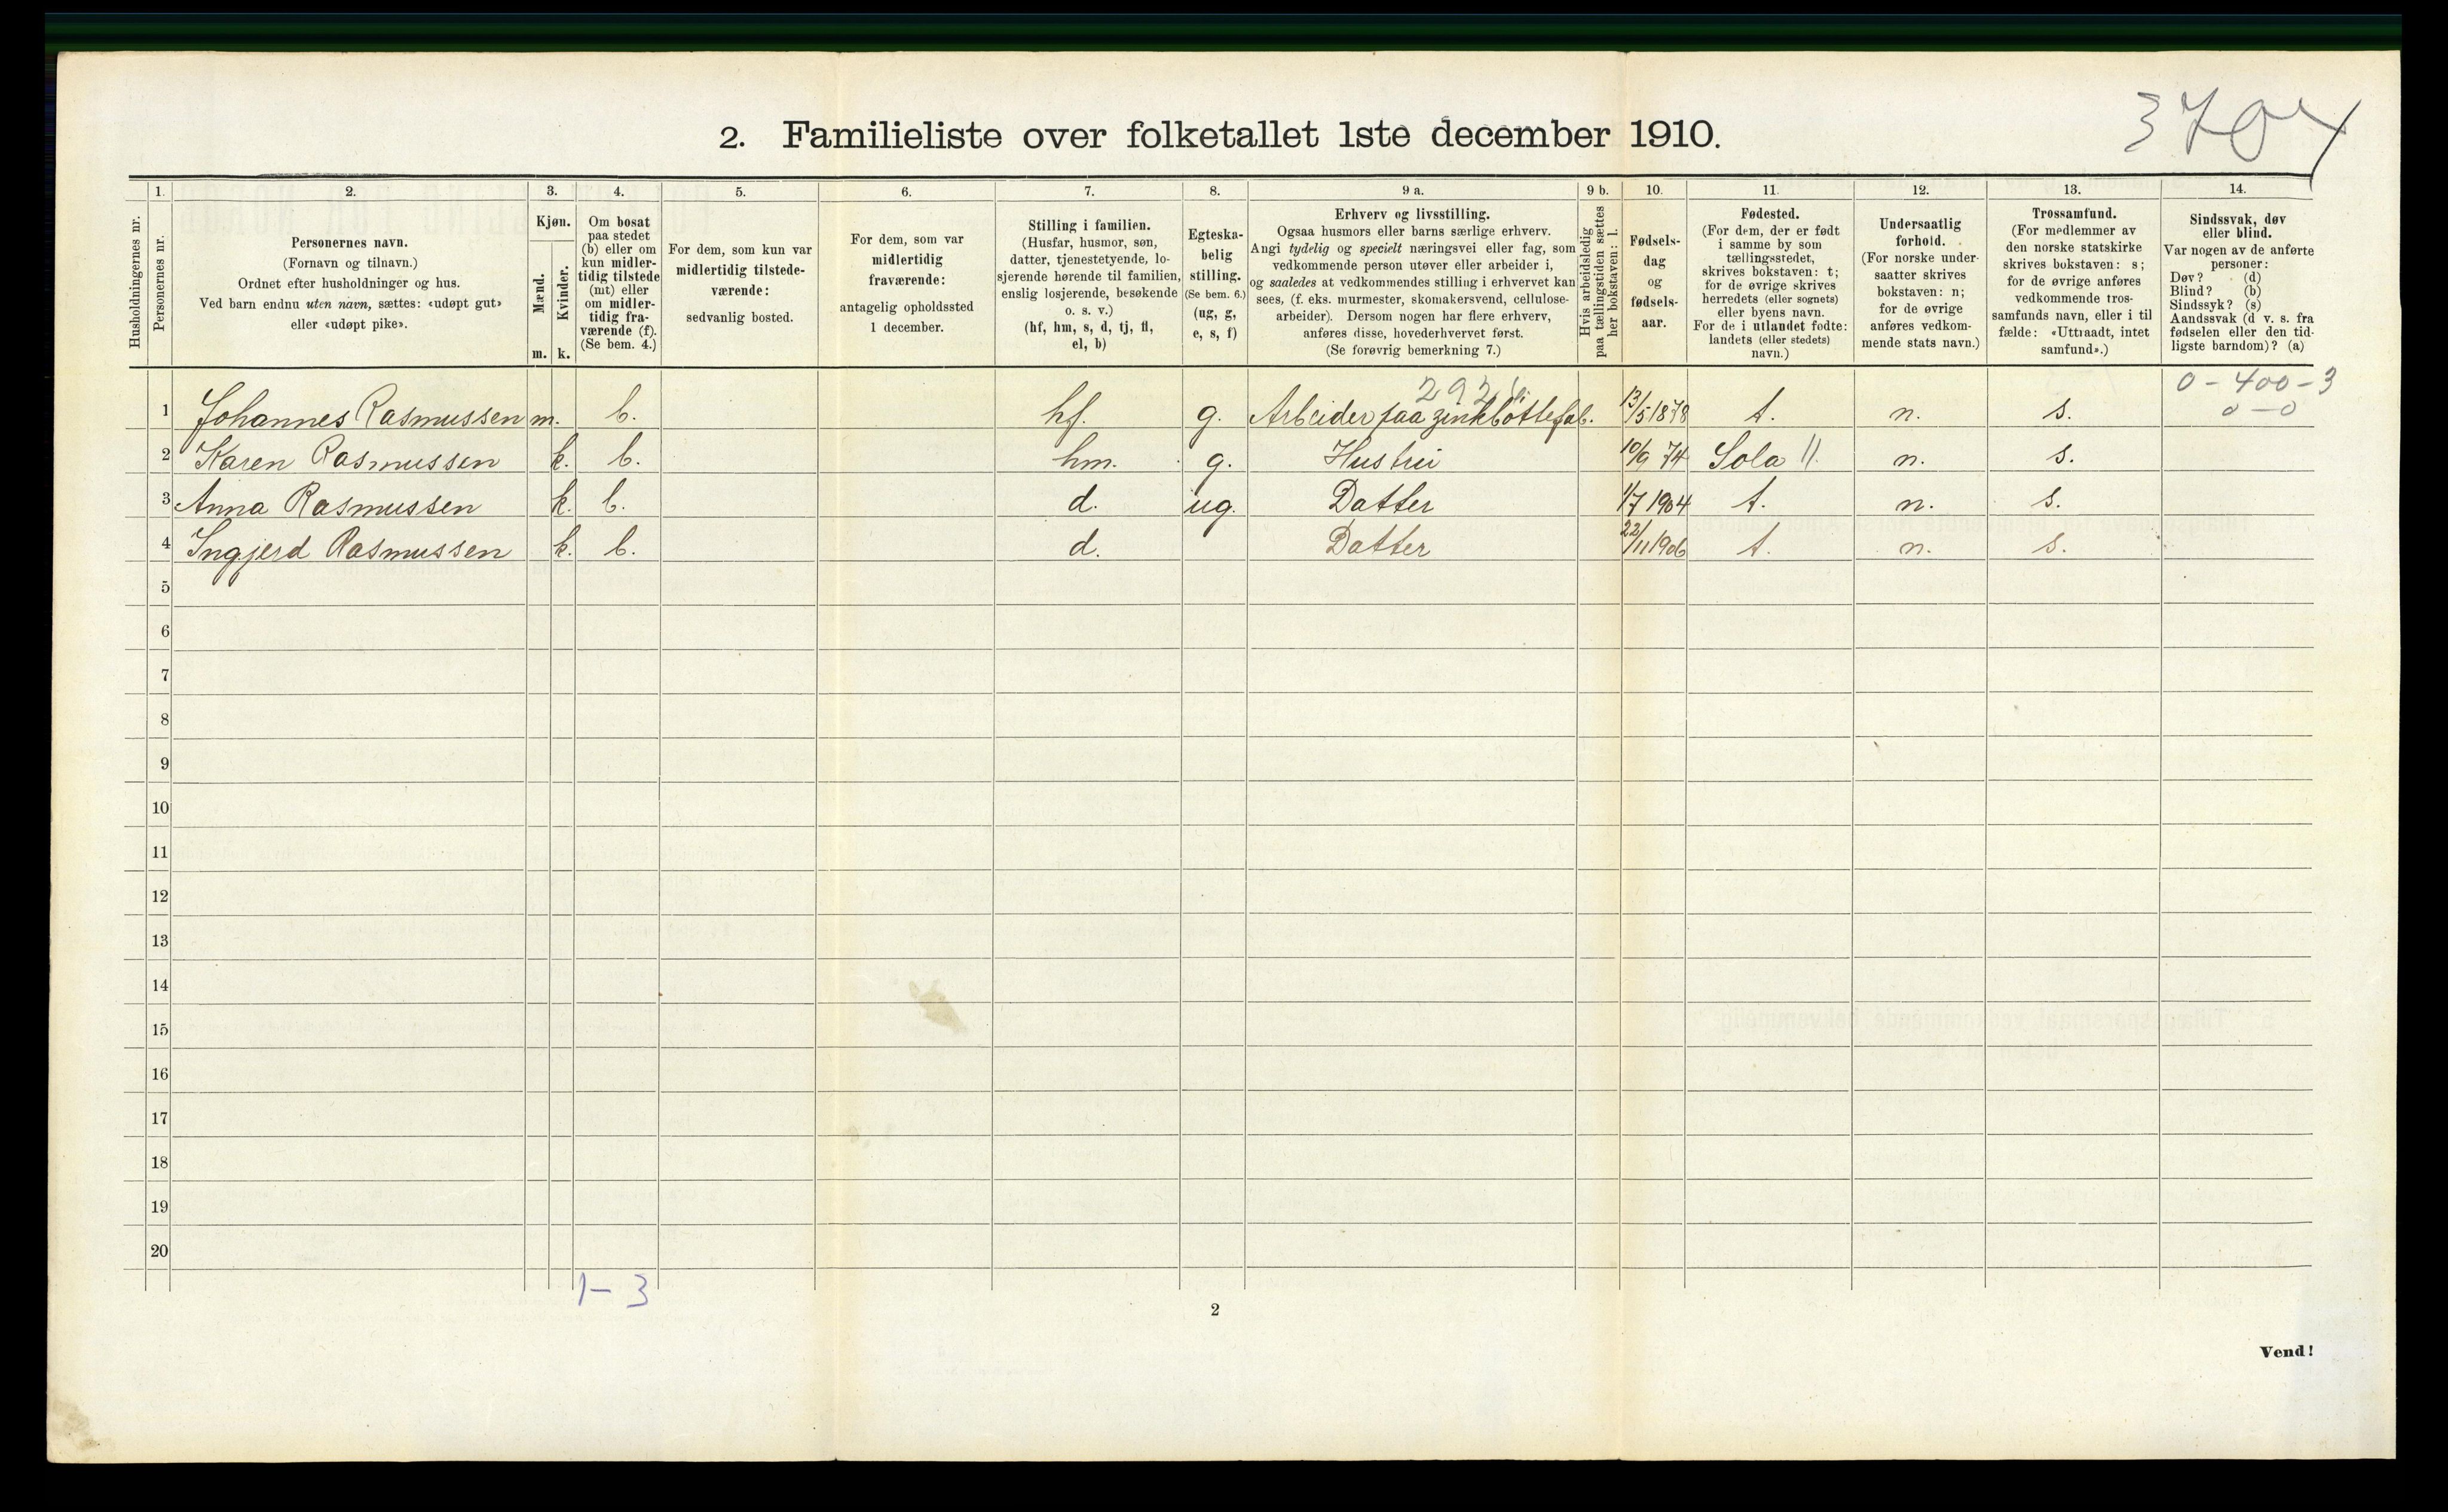 3704
2. Familieliste over folketallet 1ste december 1910.
1. 2. 3. 4. 5. 6. 7. 8. 9 a. 9 b. 10. 11. 12. 13. 14.
Husholdningernes nr.
Personernes nr.
Personernes navn.
(Fornavn og tilnavn.)
Ordnet efter husholdninger og hus.
Ved barn endnu uten navn, sættes: «udøpt gut»
eller «udøpt pike».
Kjøn.
Mænd.
Kvinder.
m. k.
Om bosat
paa stedet
(b) eller om
kun midler-
tidig tilstede
(mt) eller
om midler-
tidig fra-
værende (f).
(Se bem. 4.)
For dem, som kun var
midlertidig tilstede-
værende:
sedvanlig bosted.
For dem, som var
midlertidig
fraværende:
antagelig opholdssted
1 december.
Stilling i familien.
(Husfar, husmor, søn,
datter, tjenestetyende, lo-
sjerende hørende til familien,
enslig losjerende, besøkende
o. s. v.)
(hf, hm, s, d, tj, fl,
el, b)
Egteska-
belig
stilling.
(Se bem. 6.)
(ug, g,
e, s, f)
Erhverv og livsstilling.
Ogsaa husmors eller barns særlige erhverv.
Angi tydelig og specielt næringsvei eller fag, som
vedkommende person utøver eller arbeider i,
og saaledes at vedkommendes stilling i erhvervet kan
sees, (f. eks. murmester, skomakersvend, cellulose-
arbeider). Dersom nogen har flere erhverv,
anføres disse, hovederhvervet først.
(Se forøvrig bemerkning 7.)
Hvis arbeidsledig
paa tællingstiden sættes
her bokstaven: l.
Fødsels-
dag
og
fødsels-
aar.
Fødested.
(For dem, der er født
i samme by som
tællingsstedet,
skrives bokstaven: t;
for de øvrige skrives
herredets (eller sognets)
eller byens navn.
For de i utlandet fødte:
landets (eller stedets)
navn.)
Undersaatlig
forhold.
(For norske under-
saatter skrives
bokstaven: n;
for de øvrige
anføres vedkom-
mende stats navn.)
Trossamfund.
(For medlemmer av
den norske statskirke
skrives bokstaven: s;
for de øvrige anføres
vedkommende tros-
samfunds navn, eller i til
fælde: «Uttraadt, intet
samfund».)
Sindssvak, døv
eller blind.
Var nogen av de anførte
personer:
Døv? (d)
Blind? (b)
Sindssyk? (s)
Aandssvak (d v. s. fra
fødselen eller den tid-
ligste barndom)? (a)
0-400-3
0-0
1 Johannes Rasmussen m. b. hf. g. Arbeider paa zinkbøttefab. 13/5 1878 t. n. s.
2 Karen Rasmussen k. b. hm. g. Hustru 10/9 74 Sola 11. n. s.
3 Anna Rasmussen k. b. d. ug. Datter 1/7 1904 t. n. s.
4 Ingjerd Rasmussen k. b. d. Datter 22/11 1906 t. n. s.
5
6
7
8
9
10
11
12
13
14
15
16
17
18
19
20
1-3
2
Vend!